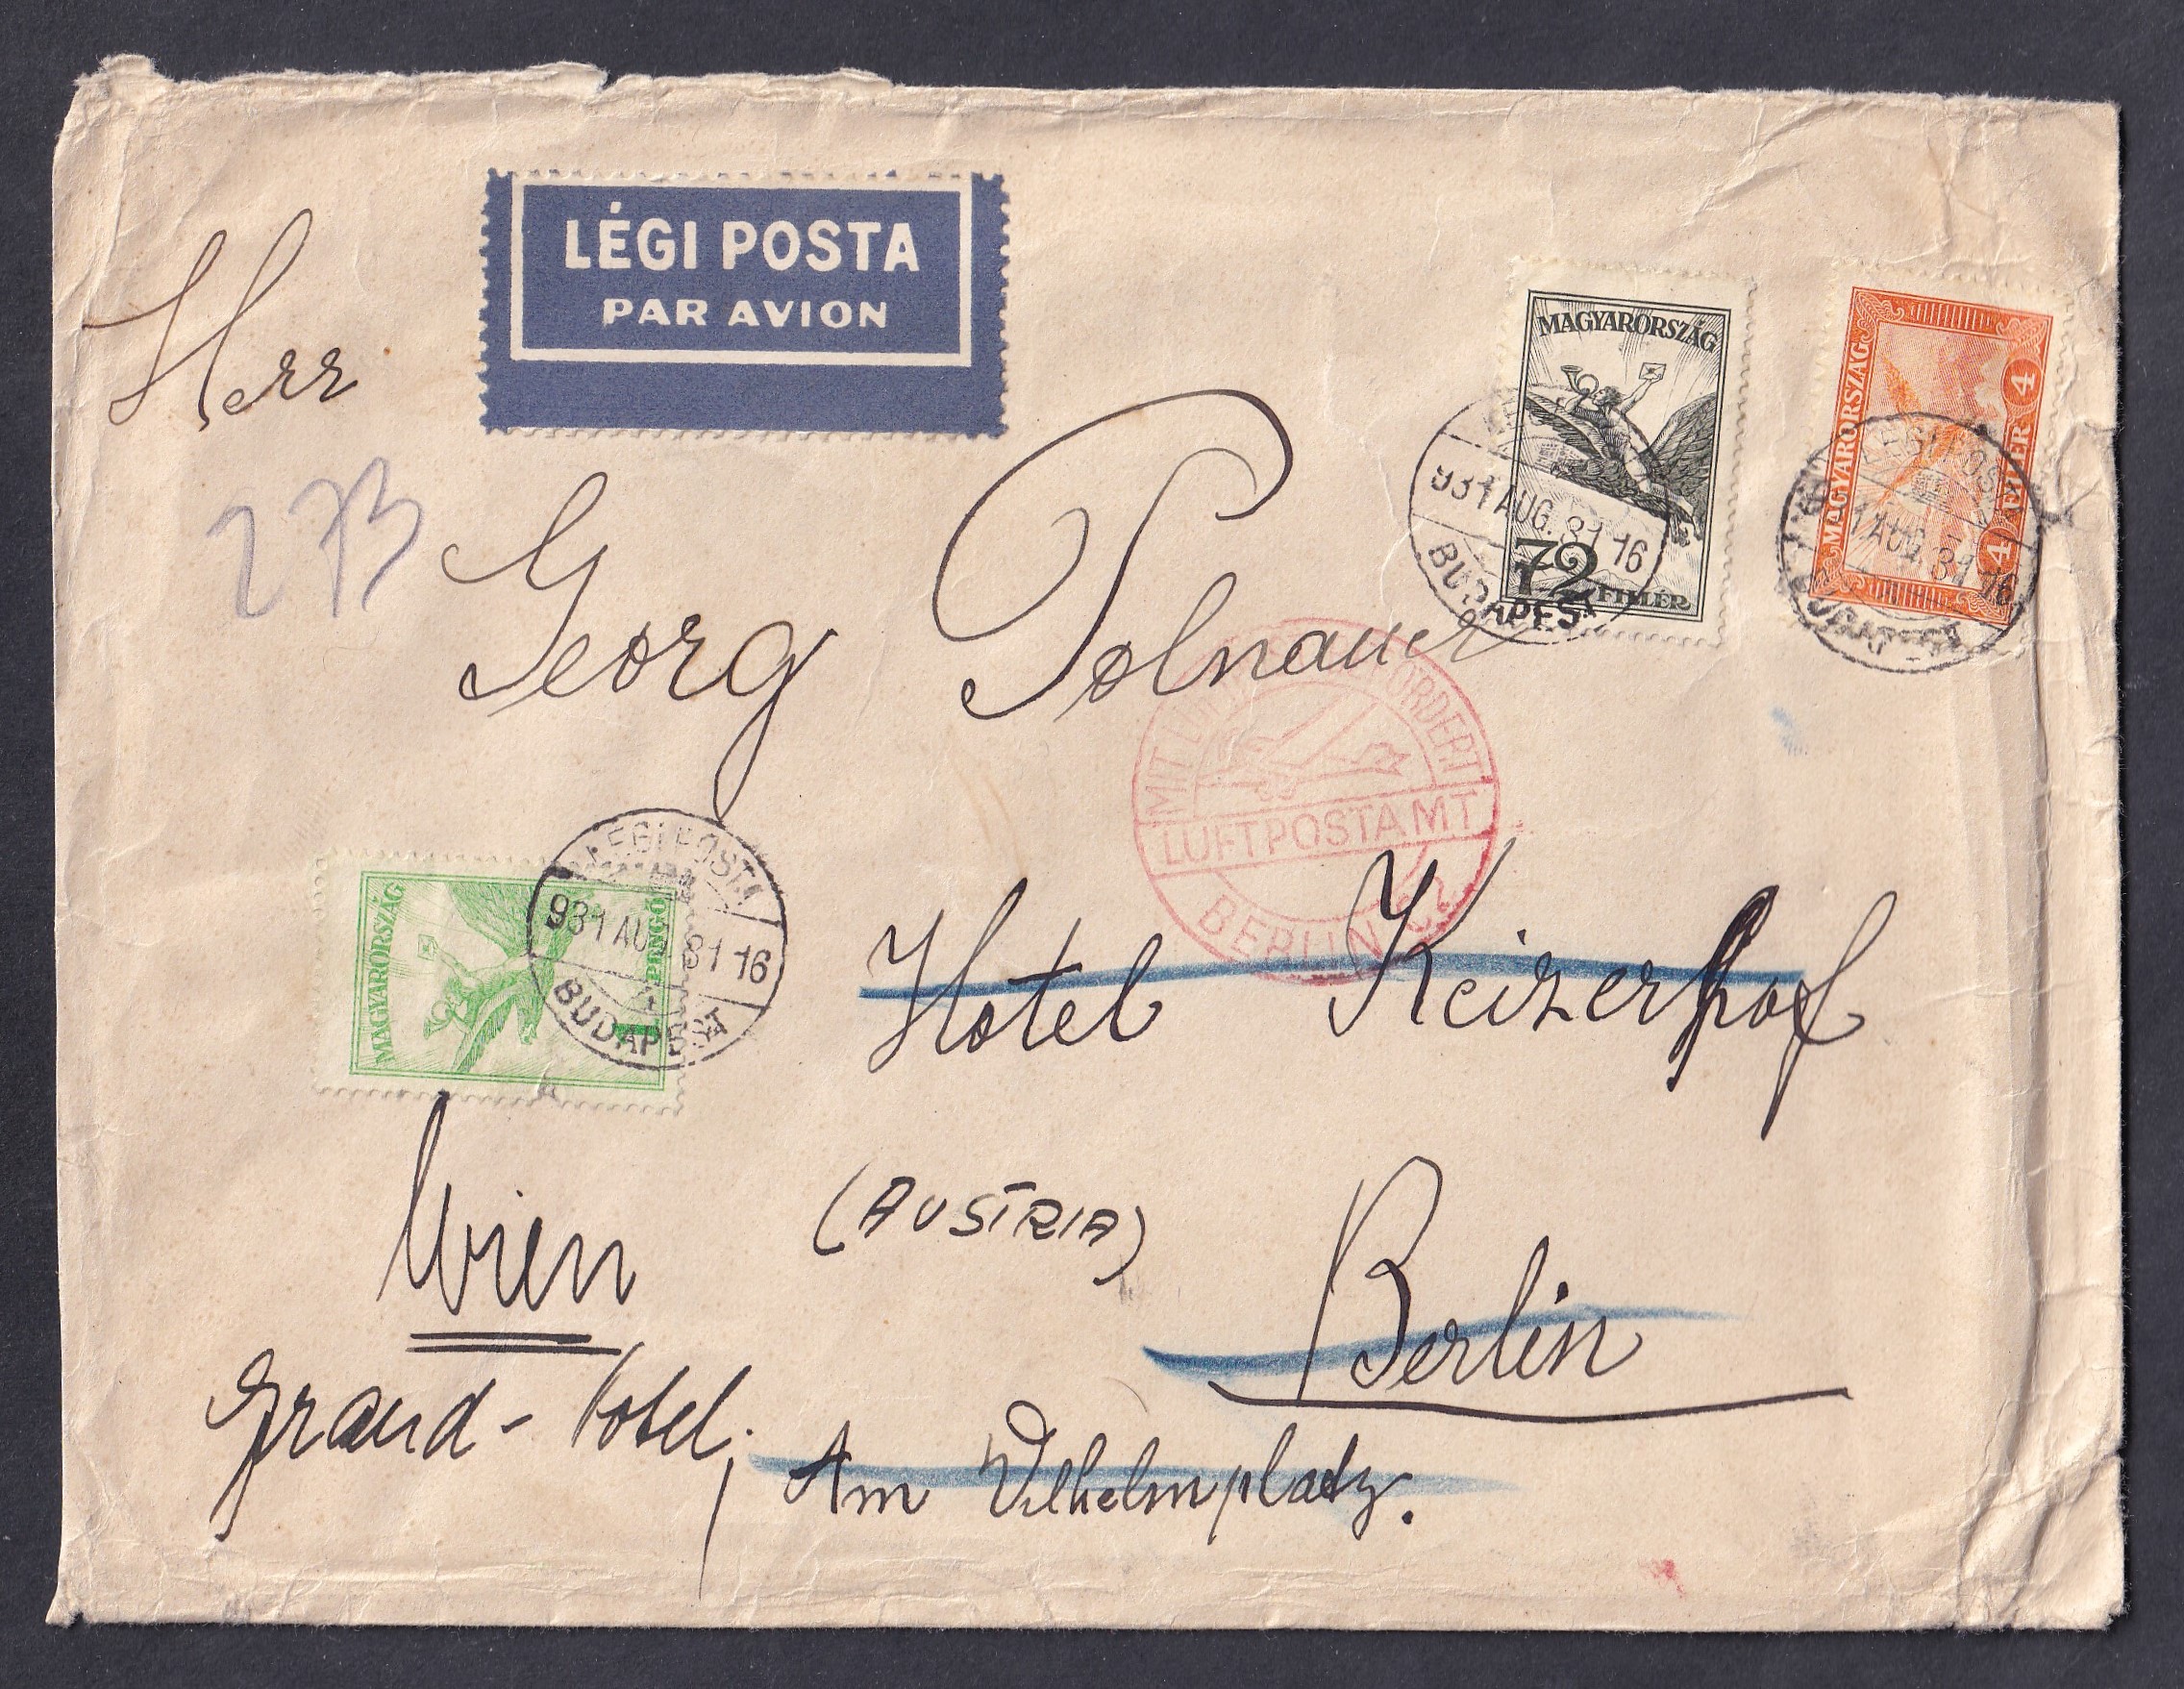 LÉGI POSTA
PAR AVION
Herr
273
Georg Polnauer
MAGYARORSZÁG
72 FILLÉR
931 AUG. 31 16
BUDAPEST
MAGYARORSZÁG
4 FILLÉR 4
LEGI POSTA
1 AUG. 31 16
BUDAPEST
MIT LUFTPOST BEFÖRDERT
LUFTPOSTAMT
BERLIN C2
MAGYARORSZÁG
1 PENGŐ
LEGI POSTA
931 AUG. 31 16
BUDAPEST
Hotel Keizerhof
Wien
(AUSTRIA)
Berlin
Grand-Hotel;
Am Wilhelmplatz.